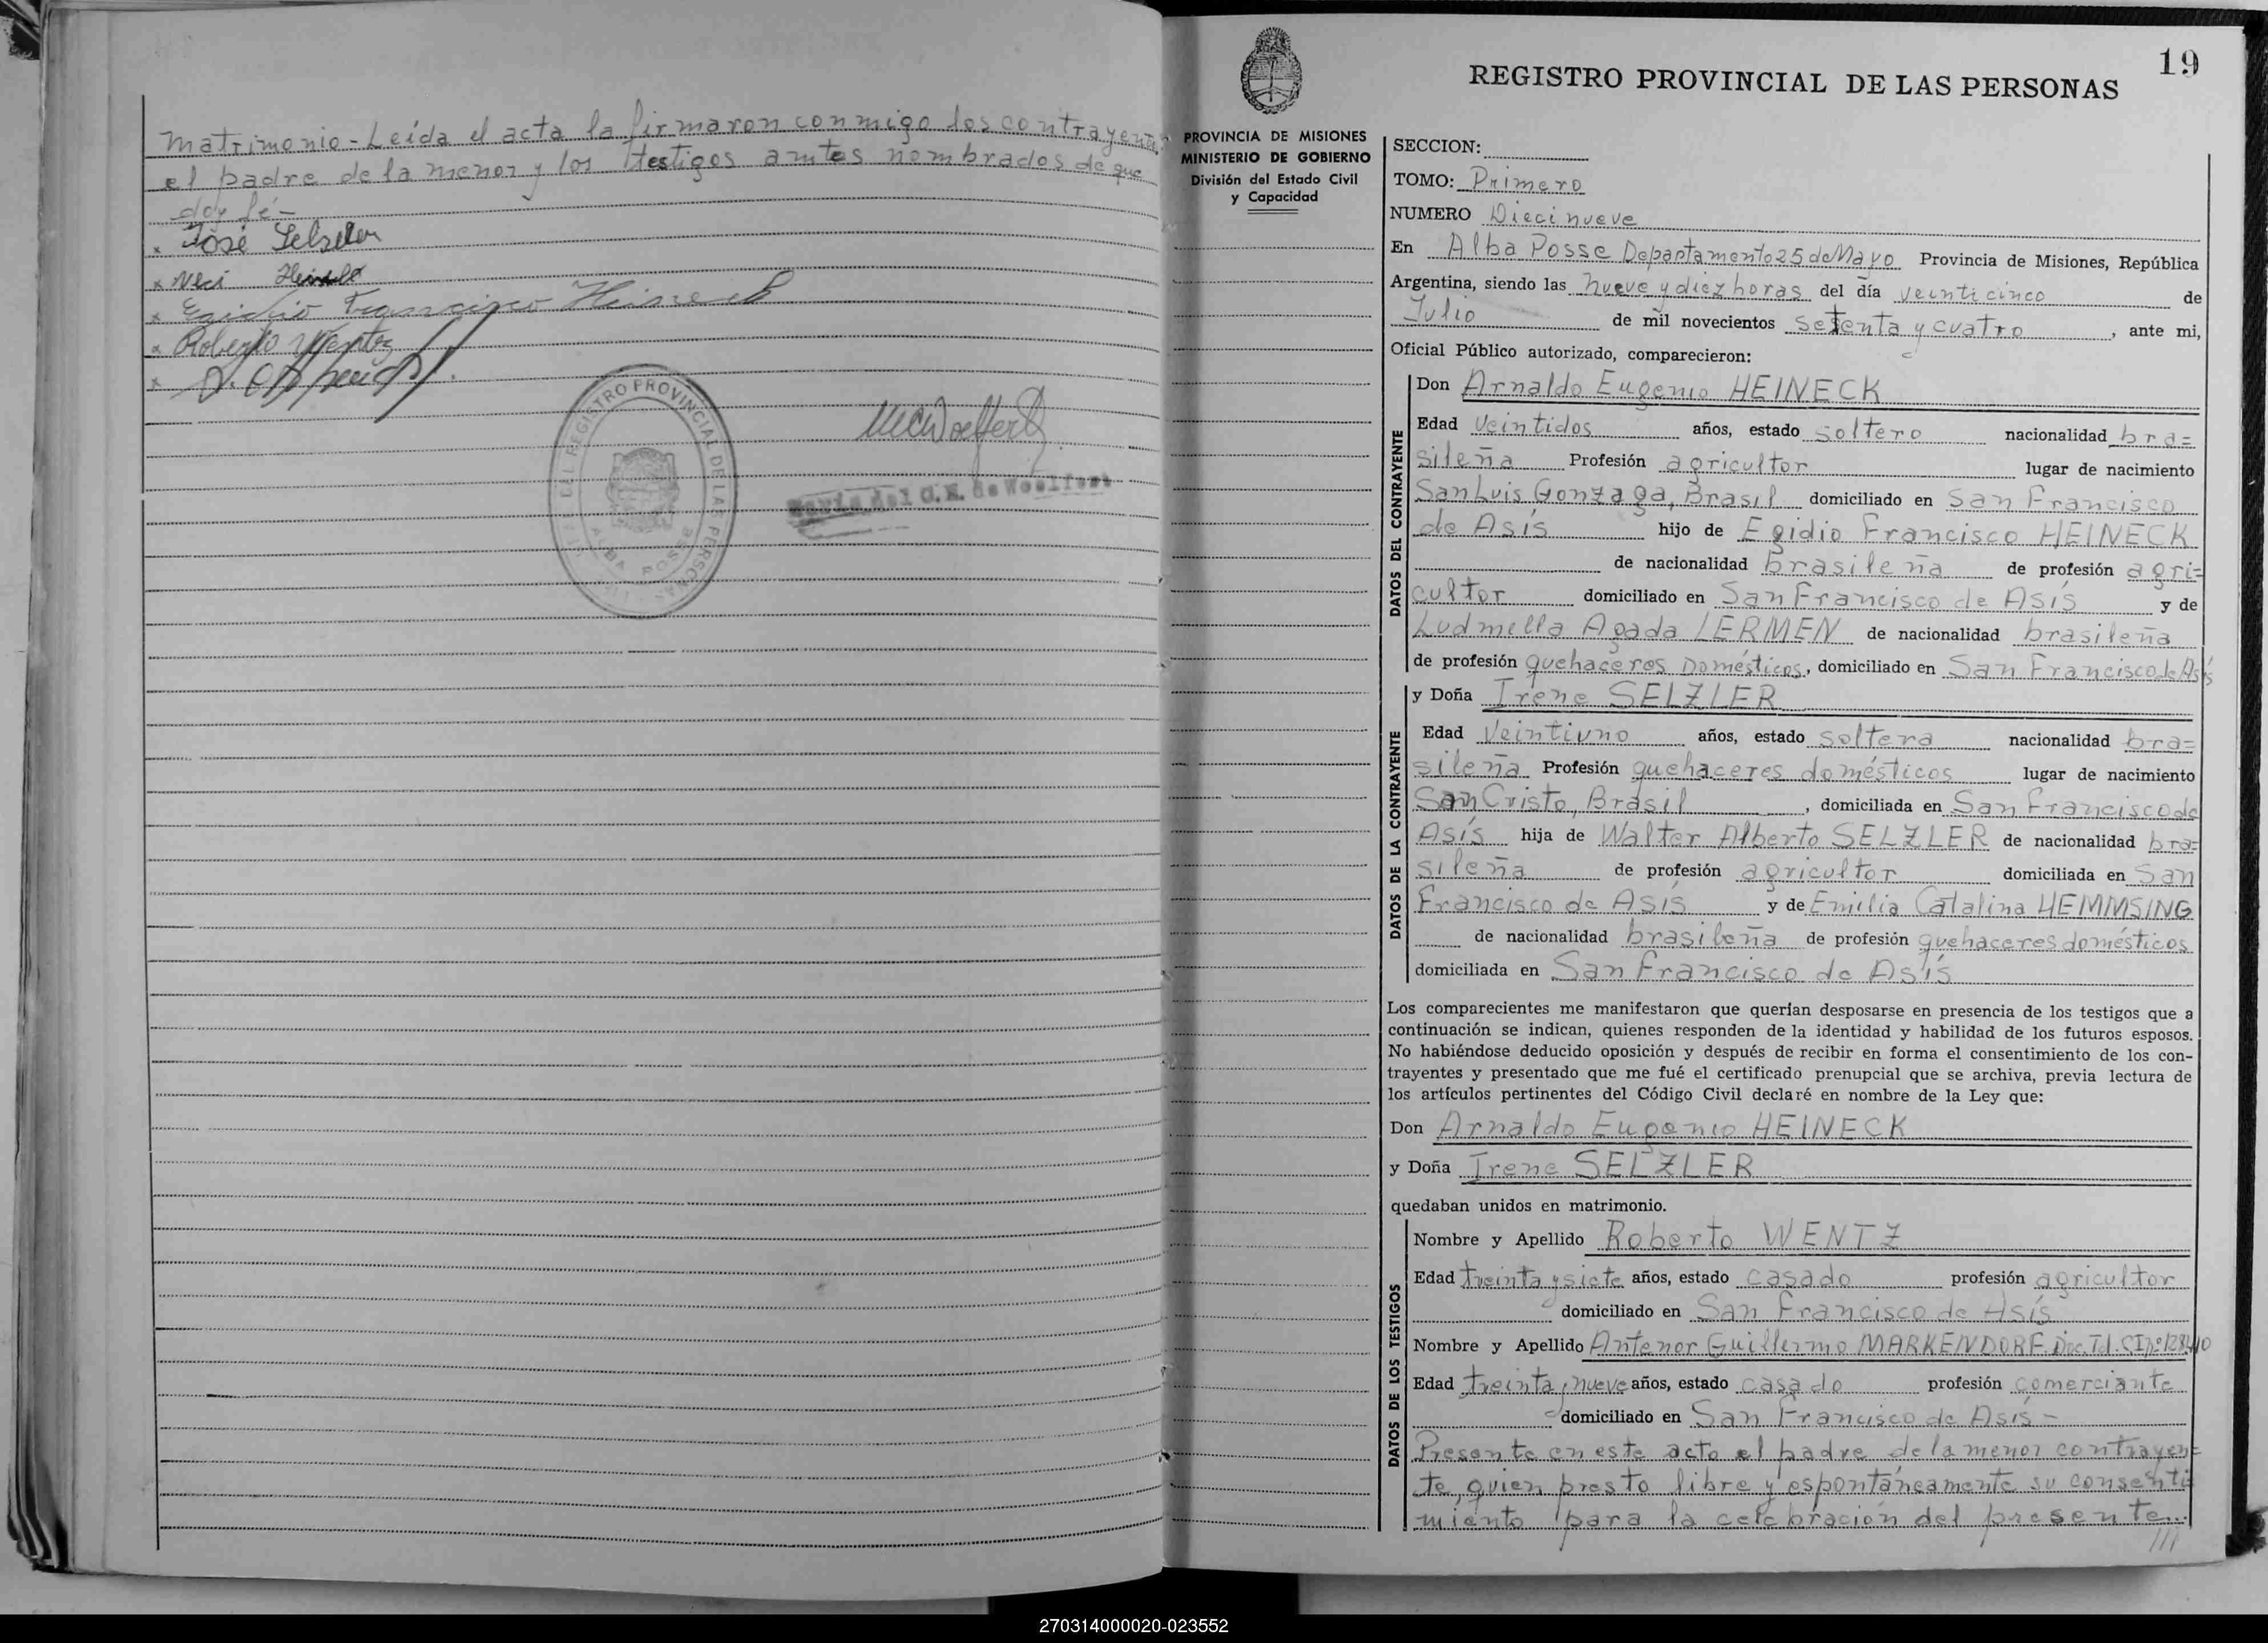 matrimonio-Leída el acta la firmaron conmigo los contrayentes
el padre de la menor y los testigos antes nombrados de que
doy fé-
x José Selzler
x Neci Heineck
x Egidio Francisco Heineck
x Roberto Wentz
x
DEL REGISTRO PROVINCIAL DE LAS PERSONAS
ALBA POSSE
María del C. K. de Woelfert
19
REGISTRO PROVINCIAL DE LAS PERSONAS
PROVINCIA DE MISIONES
MINISTERIO DE GOBIERNO
División del Estado Civil
y Capacidad
SECCION:
TOMO: Primero
NUMERO Diecinueve
En Alba Posse Departamento 25 de Mayo Provincia de Misiones, República
Argentina, siendo las nueve y diez horas del día veinticinco de
Julio de mil novecientos setenta y cuatro, ante mi,
Oficial Público autorizado, comparecieron:
DATOS DEL CONTRAYENTE
Don Arnaldo Eugenio HEINECK
Edad veintidos años, estado soltero nacionalidad bra=
sileña Profesión agricultor lugar de nacimiento
San Luis Gonzaga, Brasil domiciliado en San Francisco
de Asís hijo de Egidio Francisco HEINECK
de nacionalidad brasileña de profesión agri=
cultor domiciliado en San Francisco de Asís y de
Ludmella Agada LERMEN de nacionalidad brasileña
de profesión quehaceres Domésticos, domiciliado en San Francisco de Asís
DATOS DE LA CONTRAYENTE
y Doña Irene SELZLER
Edad Veintiuno años, estado soltera nacionalidad bra=
sileña Profesión quehaceres domésticos lugar de nacimiento
San Cristo, Brasil, domiciliada en San Francisco de
Asís hija de Walter Alberto SELZLER de nacionalidad bra=
sileña de profesión agricultor domiciliada en San
Francisco de Asís y de Emilia Catalina HEMMSING
de nacionalidad brasileña de profesión quehaceres domésticos
domiciliada en San Francisco de Asís
Los comparecientes me manifestaron que querían desposarse en presencia de los testigos que a
continuación se indican, quienes responden de la identidad y habilidad de los futuros esposos.
No habiéndose deducido oposición y después de recibir en forma el consentimiento de los con-
trayentes y presentado que me fué el certificado prenupcial que se archiva, previa lectura de
los artículos pertinentes del Código Civil declaré en nombre de la Ley que:
Don Arnaldo Eugenio HEINECK
y Doña Irene SELZLER
quedaban unidos en matrimonio.
DATOS DE LOS TESTIGOS
Nombre y Apellido Roberto WENTZ
Edad treinta y siete años, estado casado profesión agricultor
domiciliado en San Francisco de Asís
Nombre y Apellido Antenor Guillermo MARKENDORF. Doc. Id. CI nº
Edad treinta y nueve años, estado casado profesión comerciante
domiciliado en San Francisco de Asís-
Presente en este acto el padre de la menor contrayen=
te, quien presto libre y espontáneamente su consenti=
miento para la celebración del presente...
///
270314000020-023552